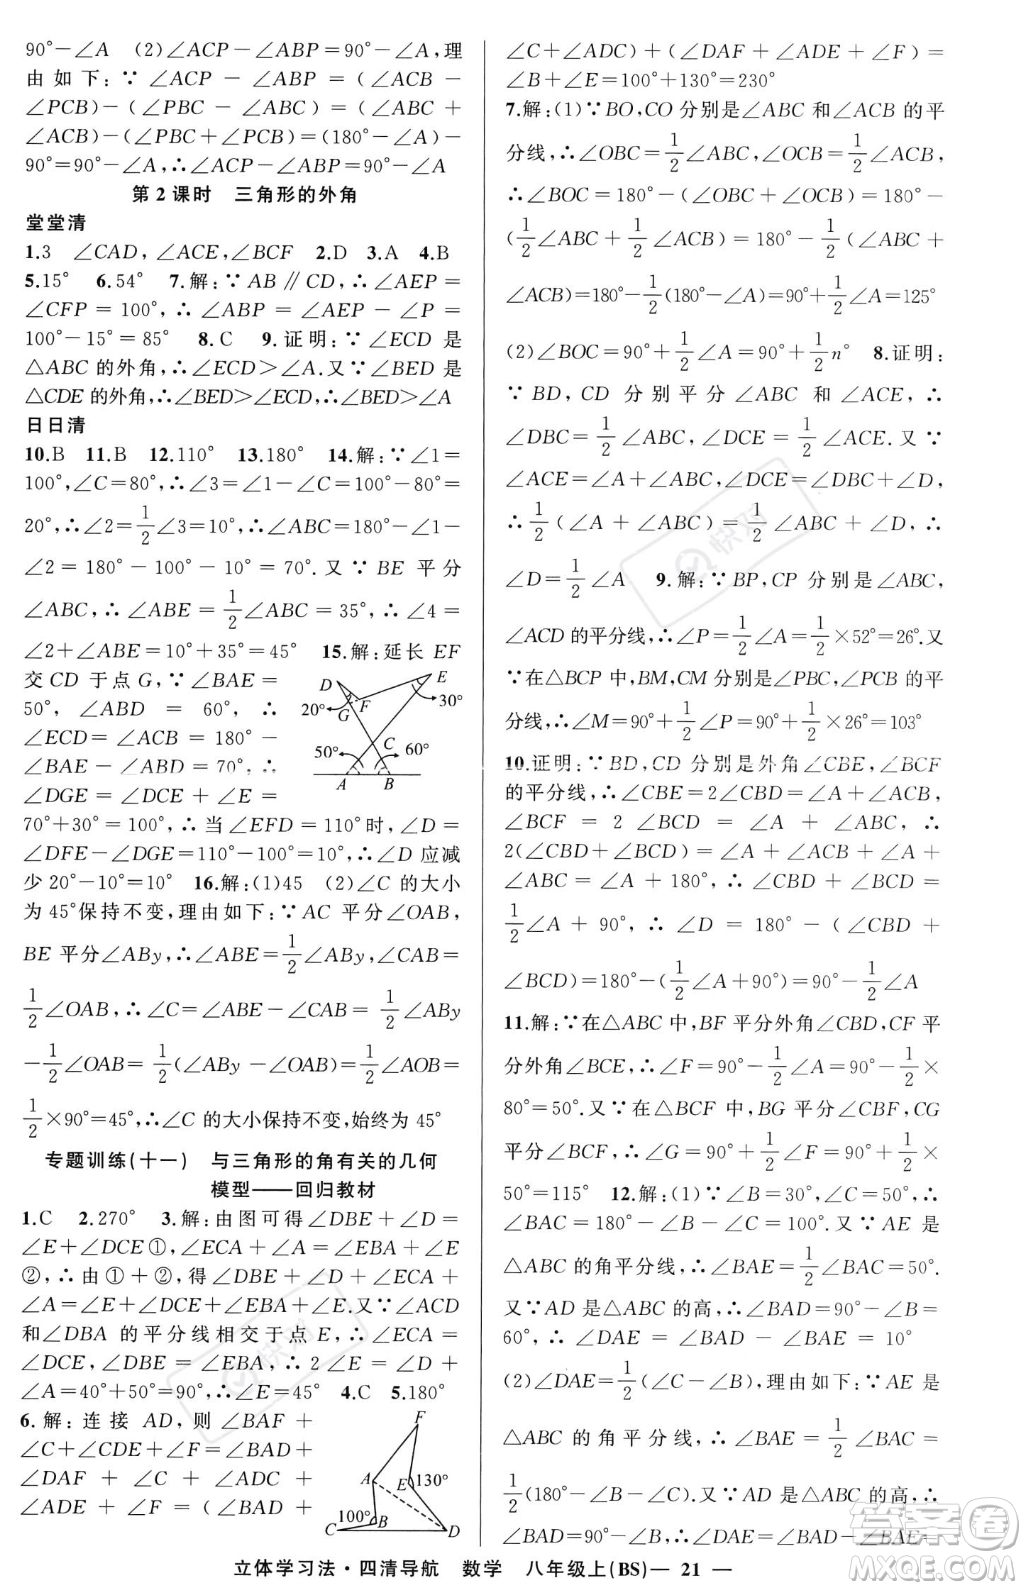 90°－∠A　(2)∠ACP－∠ABP＝90°－∠A,理
由如下:∵∠ACP－∠ABP＝(∠ACB－
∠PCB)－(∠PBC－∠ABC)＝(∠ABC＋
∠ACB)－(∠PBC＋∠PCB)＝(180°－∠A)－
90°＝90°－∠A,∴∠ACP－∠ABP＝90°－∠A
第2课时　三角形的外角
堂堂清
1.3　∠CAD,∠ACE,∠BCF　2.D　3.A　4.B
5.15°　6.54°　7.解:∵AB∥CD,∴∠AEP＝
∠CFP＝100°,∴∠ABP＝∠AEP－∠P＝
100°－15°＝85°　8.C　9.证明:∵∠ECD是
△ABC的外角,∴∠ECD＞∠A.又∵∠BED是
△CDE的外角,∴∠BED＞∠ECD,∴∠BED＞∠A
日日清
10.B　11.B　12.110°　13.180°　14.解:∵∠1＝
100°,∠C＝80°,∴∠3＝∠1－∠C＝100°－80°＝
20°,∴∠2＝1/2∠3＝10°,∴∠ABC＝180°－∠1－
∠2＝180°－100°－10°＝70°.又∵BE平分
∠ABC,∴∠ABE＝1/2∠ABC＝35°,∴∠4＝
∠2＋∠ABE＝10°＋35°＝45°　15.解:延长EF
交CD于点G,∵∠BAE＝
50°,∠ABD＝60°,∴
∠ECD＝∠ACB＝180°－
∠BAE－∠ABD＝70°.∴
∠DGE＝∠DCE＋∠E＝
70°＋30°＝100°,∴当∠EFD＝110°时,∠D＝
∠DFE－∠DGE＝110°－100°＝10°,∴∠D应减
少20°－10°＝10°　16.解:(1)45　(2)∠C的大小
为45°保持不变,理由如下:∵AC平分∠OAB,
BE平分∠ABy,∴∠ABE＝1/2∠ABy,∠CAB＝
1/2∠OAB,∴∠C＝∠ABE－∠CAB＝1/2∠ABy
－1/2∠OAB＝1/2(∠ABy－∠OAB)＝1/2∠AOB＝
1/2×90°＝45°,∴∠C的大小保持不变,始终为45°
专题训练(十一)　与三角形的角有关的几何
模型——回归教材
1.C　2.270°　3.解:由图可得∠DBE＋∠D＝
∠E＋∠DCE①,∠ECA＋∠A＝∠EBA＋∠E
②,∴由①＋②,得∠DBE＋∠D＋∠ECA＋
∠A＝∠E＋∠DCE＋∠EBA＋∠E.又∵∠ACD
和∠DBA的平分线相交于点E,∴∠ECA＝
∠DCE,∠DBE＝∠EBA,∴2∠E＝∠D＋
∠A＝40°＋50°＝90°,∴∠E＝45°　4.C　5.180°
6.解:连接AD,则∠BAF＋
∠C＋∠CDE＋∠F＝∠BAD＋
∠DAF＋∠C＋∠ADC＋
∠ADE＋∠F＝(∠BAD＋
D
E
F
G
20°
30°
50°
C
60°
A
B
F
A
E
130°
100°
B
C
D
∠C＋∠ADC)＋(∠DAF＋∠ADE＋∠F)＝
∠B＋∠E＝100°＋130°＝230°
7.解:(1)∵BO,CO分别是∠ABC和∠ACB的平
分线,∴∠OBC＝1/2∠ABC,∠OCB＝1/2∠ACB,
∴∠BOC＝180°－(∠OBC＋∠OCB)＝180°－
(1/2∠ABC＋1/2∠ACB)＝180°－1/2(∠ABC＋
∠ACB)＝180°－1/2(180°－∠A)＝90°＋1/2∠A＝125°
(2)∠BOC＝90°＋1/2∠A＝90°＋1/2n°　8.证明:
∵BD,CD分别平分∠ABC和∠ACE,∴
∠DBC＝1/2∠ABC,∠DCE＝1/2∠ACE.又∵
∠ACE＝∠A＋∠ABC,∠DCE＝∠DBC＋∠D,
∴1/2(∠A＋∠ABC)＝1/2∠ABC＋∠D,∴
∠D＝1/2∠A　9.解:∵BP,CP分别是∠ABC,
∠ACD的平分线,∴∠P＝1/2∠A＝1/2×52°＝26°.又
∵在△BCP中,BM,CM分别是∠PBC,∠PCB的平
分线,∴∠M＝90°＋1/2∠P＝90°＋1/2×26°＝103°
10.证明:∵BD,CD分别是外角∠CBE,∠BCF
的平分线,∴∠CBE＝2∠CBD＝∠A＋∠ACB,
∠BCF＝2∠BCD＝∠A＋∠ABC,∴
2(∠CBD＋∠BCD)＝∠A＋∠ACB＋∠A＋
∠ABC＝∠A＋180°,∴∠CBD＋∠BCD＝
1/2∠A＋90°,∴∠D＝180°－(∠CBD＋
∠BCD)＝180°－(1/2∠A＋90°)＝90°－1/2∠A
11.解:∵在△ABC中,BF平分外角∠CBD,CF平
分外角∠BCE,∴∠F＝90°－1/2∠A＝90°－1/2×
80°＝50°.又∵在△BCF中,BG平分∠CBF,CG
平分∠BCF,∴∠G＝90°＋1/2∠F＝90°＋1/2×
50°＝115°　12.解:(1)∵∠B＝30°,∠C＝50°,∴
∠BAC＝180°－∠B－∠C＝100°.又∵AE是
△ABC的角平分线,∴∠BAE＝1/2∠BAC＝50°.
又∵AD是△ABC的高,∴∠BAD＝90°－∠B＝
60°,∴∠DAE＝∠BAD－∠BAE＝10°
(2)∠DAE＝1/2(∠C－∠B),理由如下:∵AE是
△ABC的角平分线,∴∠BAE＝1/2∠BAC＝
1/2(180°－∠B－∠C).又∵AD是△ABC的高,∴
∠BAD＝90°－∠B,∴∠DAE＝∠BAD－∠BAE＝
立体学习法·四清导航　数学　八年级上(BS)— 21 —